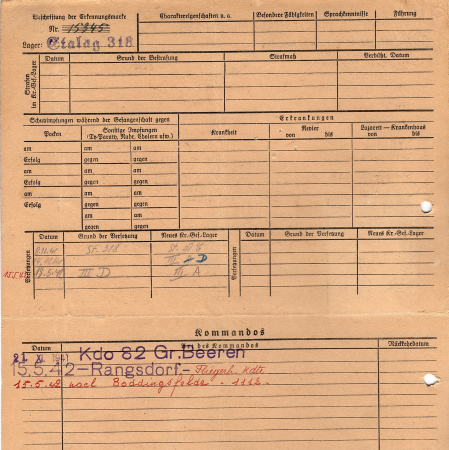 Beschriftung der Erkennungsmarke
Nr. 15345
Lager: Stalag 318
Charaktereigenschaften u. a.
Besondere Fähigkeiten
Sprachkenntnisse
Führung
Strafen im Kr.-Gef.-Lager
Datum
Grund der Bestrafung
Strafmaß
Verbüßt, Datum
Schutzimpfungen während der Gefangenschaft gegen
Erkrankungen
Pocken
Sonstige Impfungen
(Ty-Paraty, Ruhr, Cholera usw.)
Krankheit
Revier
von bis
Lazarett — Krankenhaus
von bis
am am am
Erfolg gegen gegen
am am am
Erfolg gegen gegen
am am am
Erfolg gegen gegen
am am
gegen gegen
Versetzungen
Datum
Grund der Versetzung
Neues Kr.-Gef.-Lager
Versetzungen
Datum
Grund der Versetzung
Neues Kr.-Gef.-Lager
St. 318
III D
15.5.42 III D III A
Kommandos
Datum
Art des Kommandos
Rückkehrdatum
21. XI. 1941 Kdo 82 Gr. Beeren
15.5.42-Rangsdorf- Fliegerh. Kdtr
15.5.42 nach Boddingsfelde - 1113.